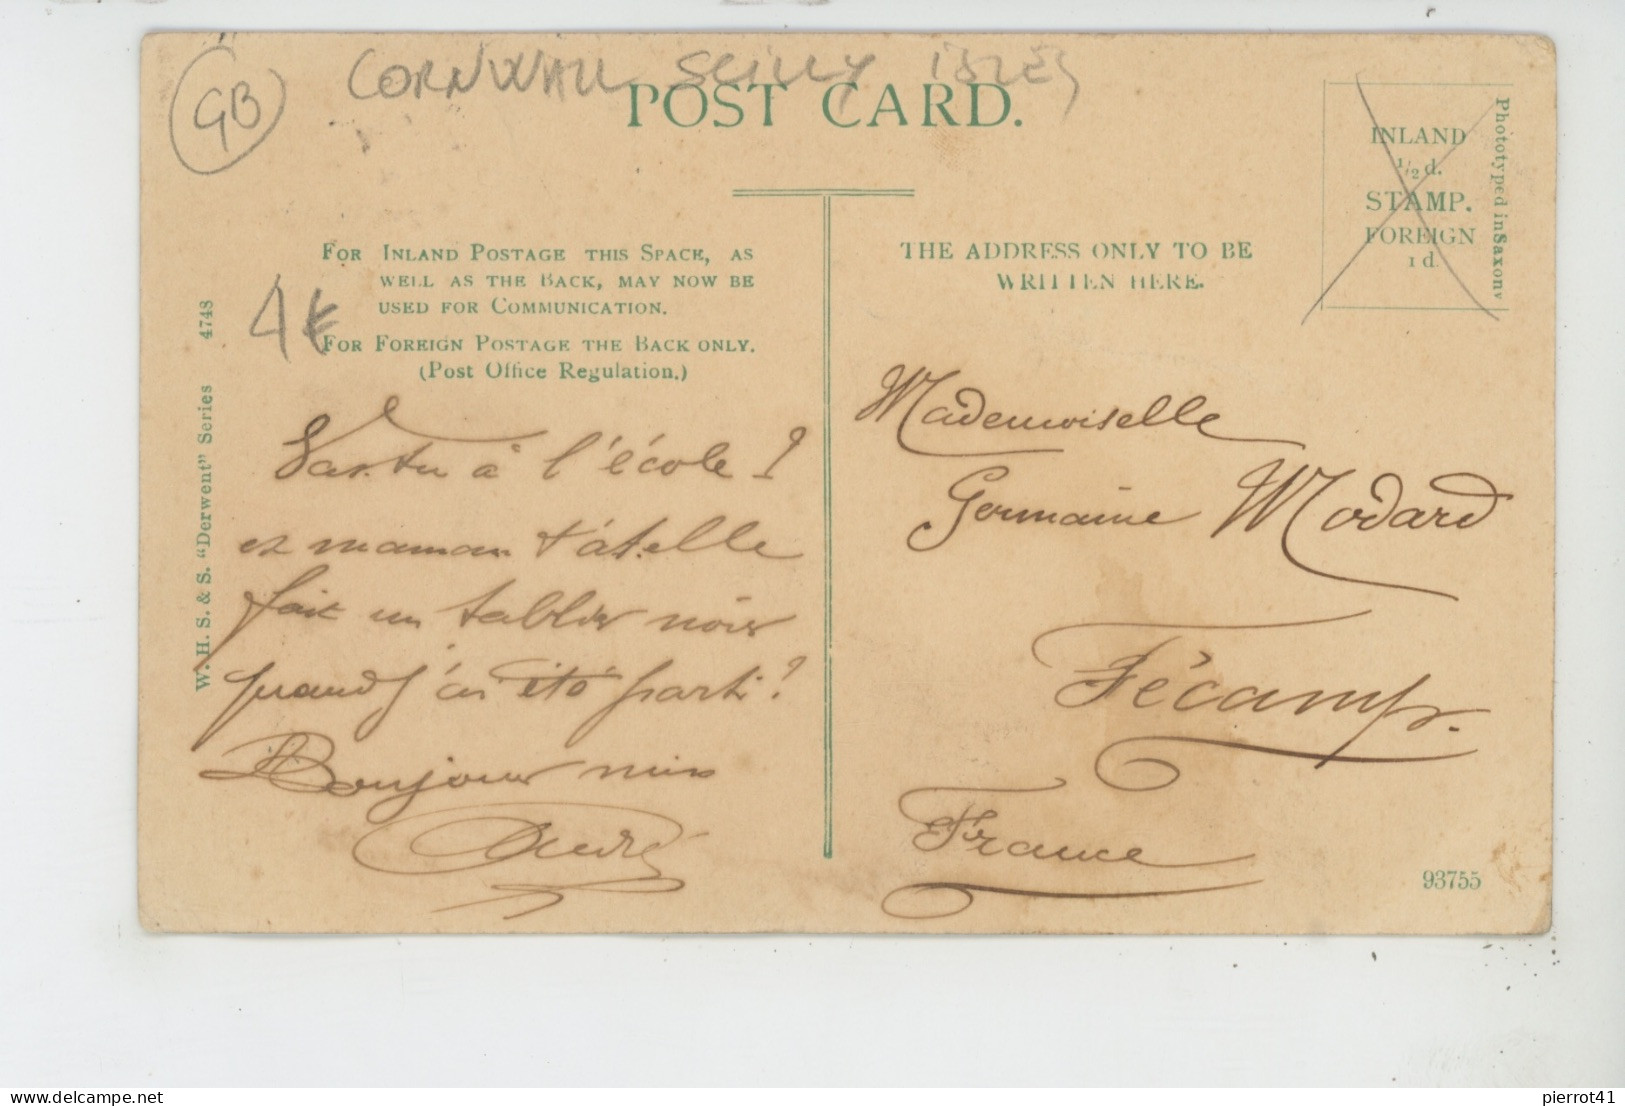 GB
CORNWALL SCILLY ISLES
POST CARD.
INLAND
½d.
STAMP.
FOREIGN
1d
Phototyped in Saxony
FOR INLAND POSTAGE THIS SPACE, AS
WELL AS THE BACK, MAY NOW BE
USED FOR COMMUNICATION.
FOR FOREIGN POSTAGE THE BACK ONLY.
(Post Office Regulation.)
THE ADDRESS ONLY TO BE
WRITTEN HERE.
4€
W. H. S. & S. "Derwent" Series 4748
Vas-tu à l'école ?
et maman t'a-t-elle
fait un tablier noir
quand j'ai été parti ?
Bonjour
André
Mademoiselle
Germaine Modard
Fécamp.
France
93755
pierrot41